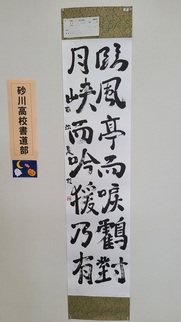 臨風亭而唳鶴對
月峡而吟猨乃有
砂川高校書道部